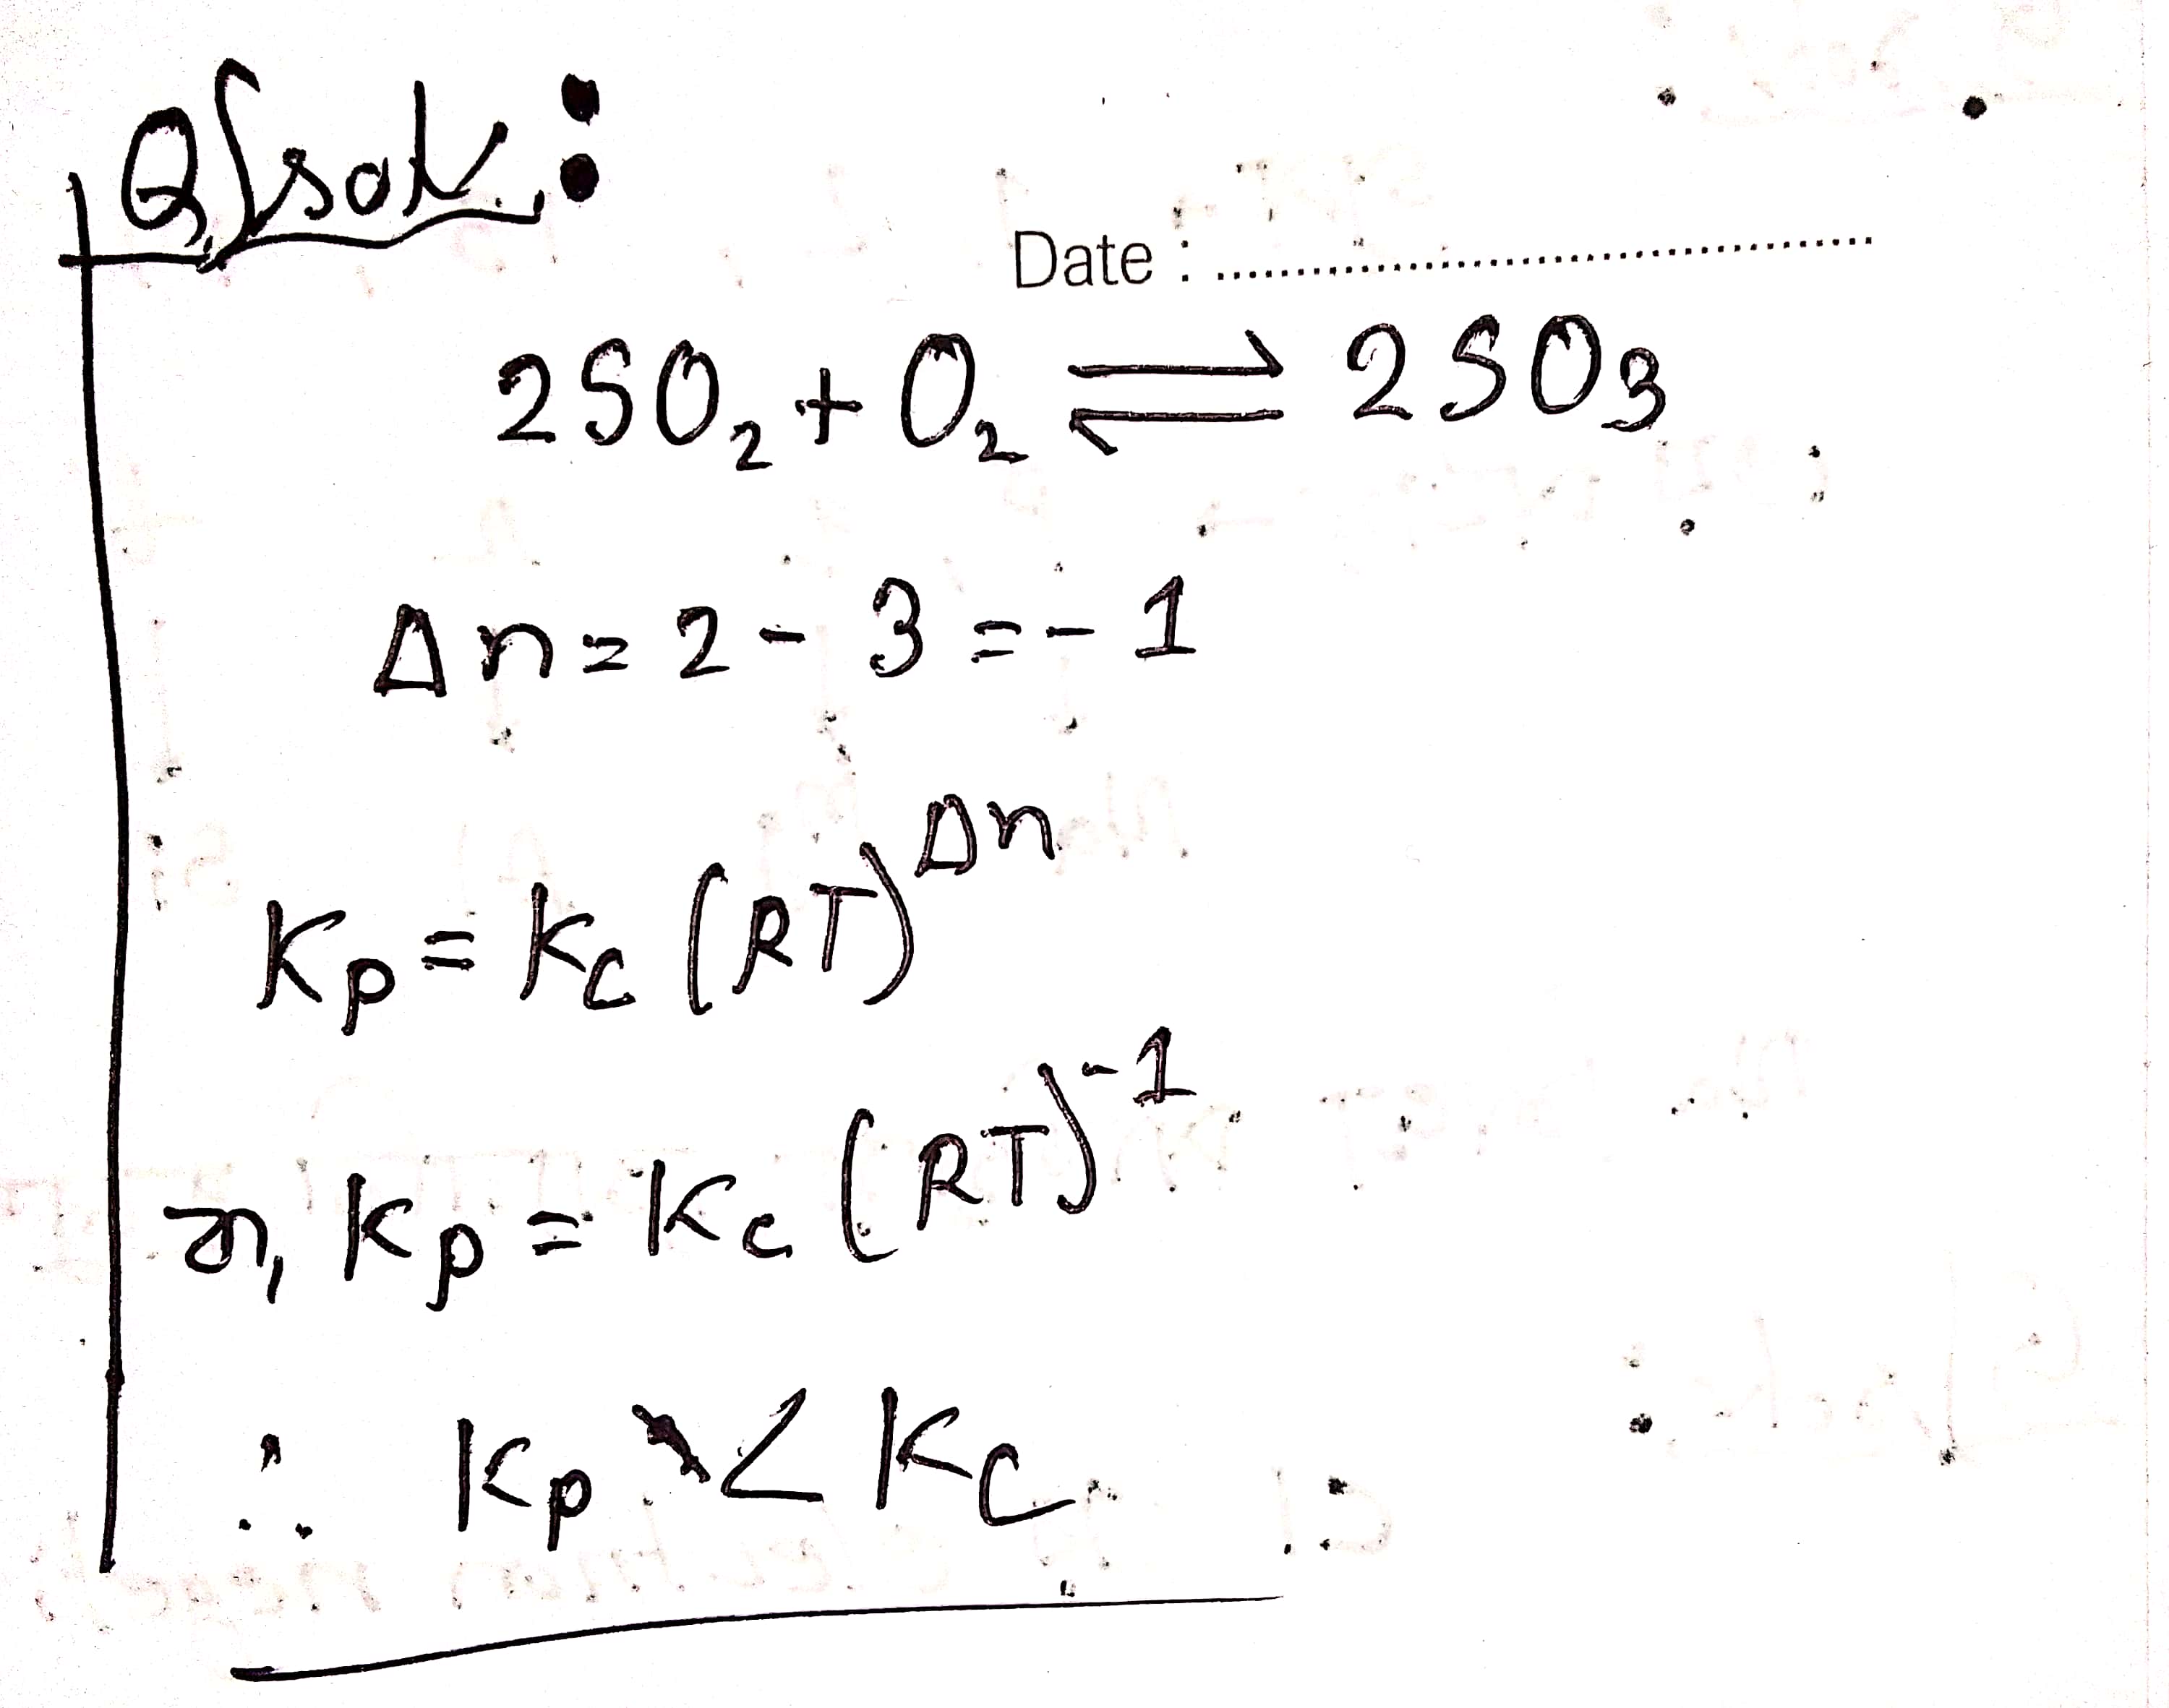 Q/ sol.:
Date : ........................................
2SO₂ + O₂ ⇌ 2SO₃
Δn = 2 - 3 = - 1
Kp = Kc (RT)^Δn
বা, Kp = Kc (RT)^-1
∴ Kp < Kc